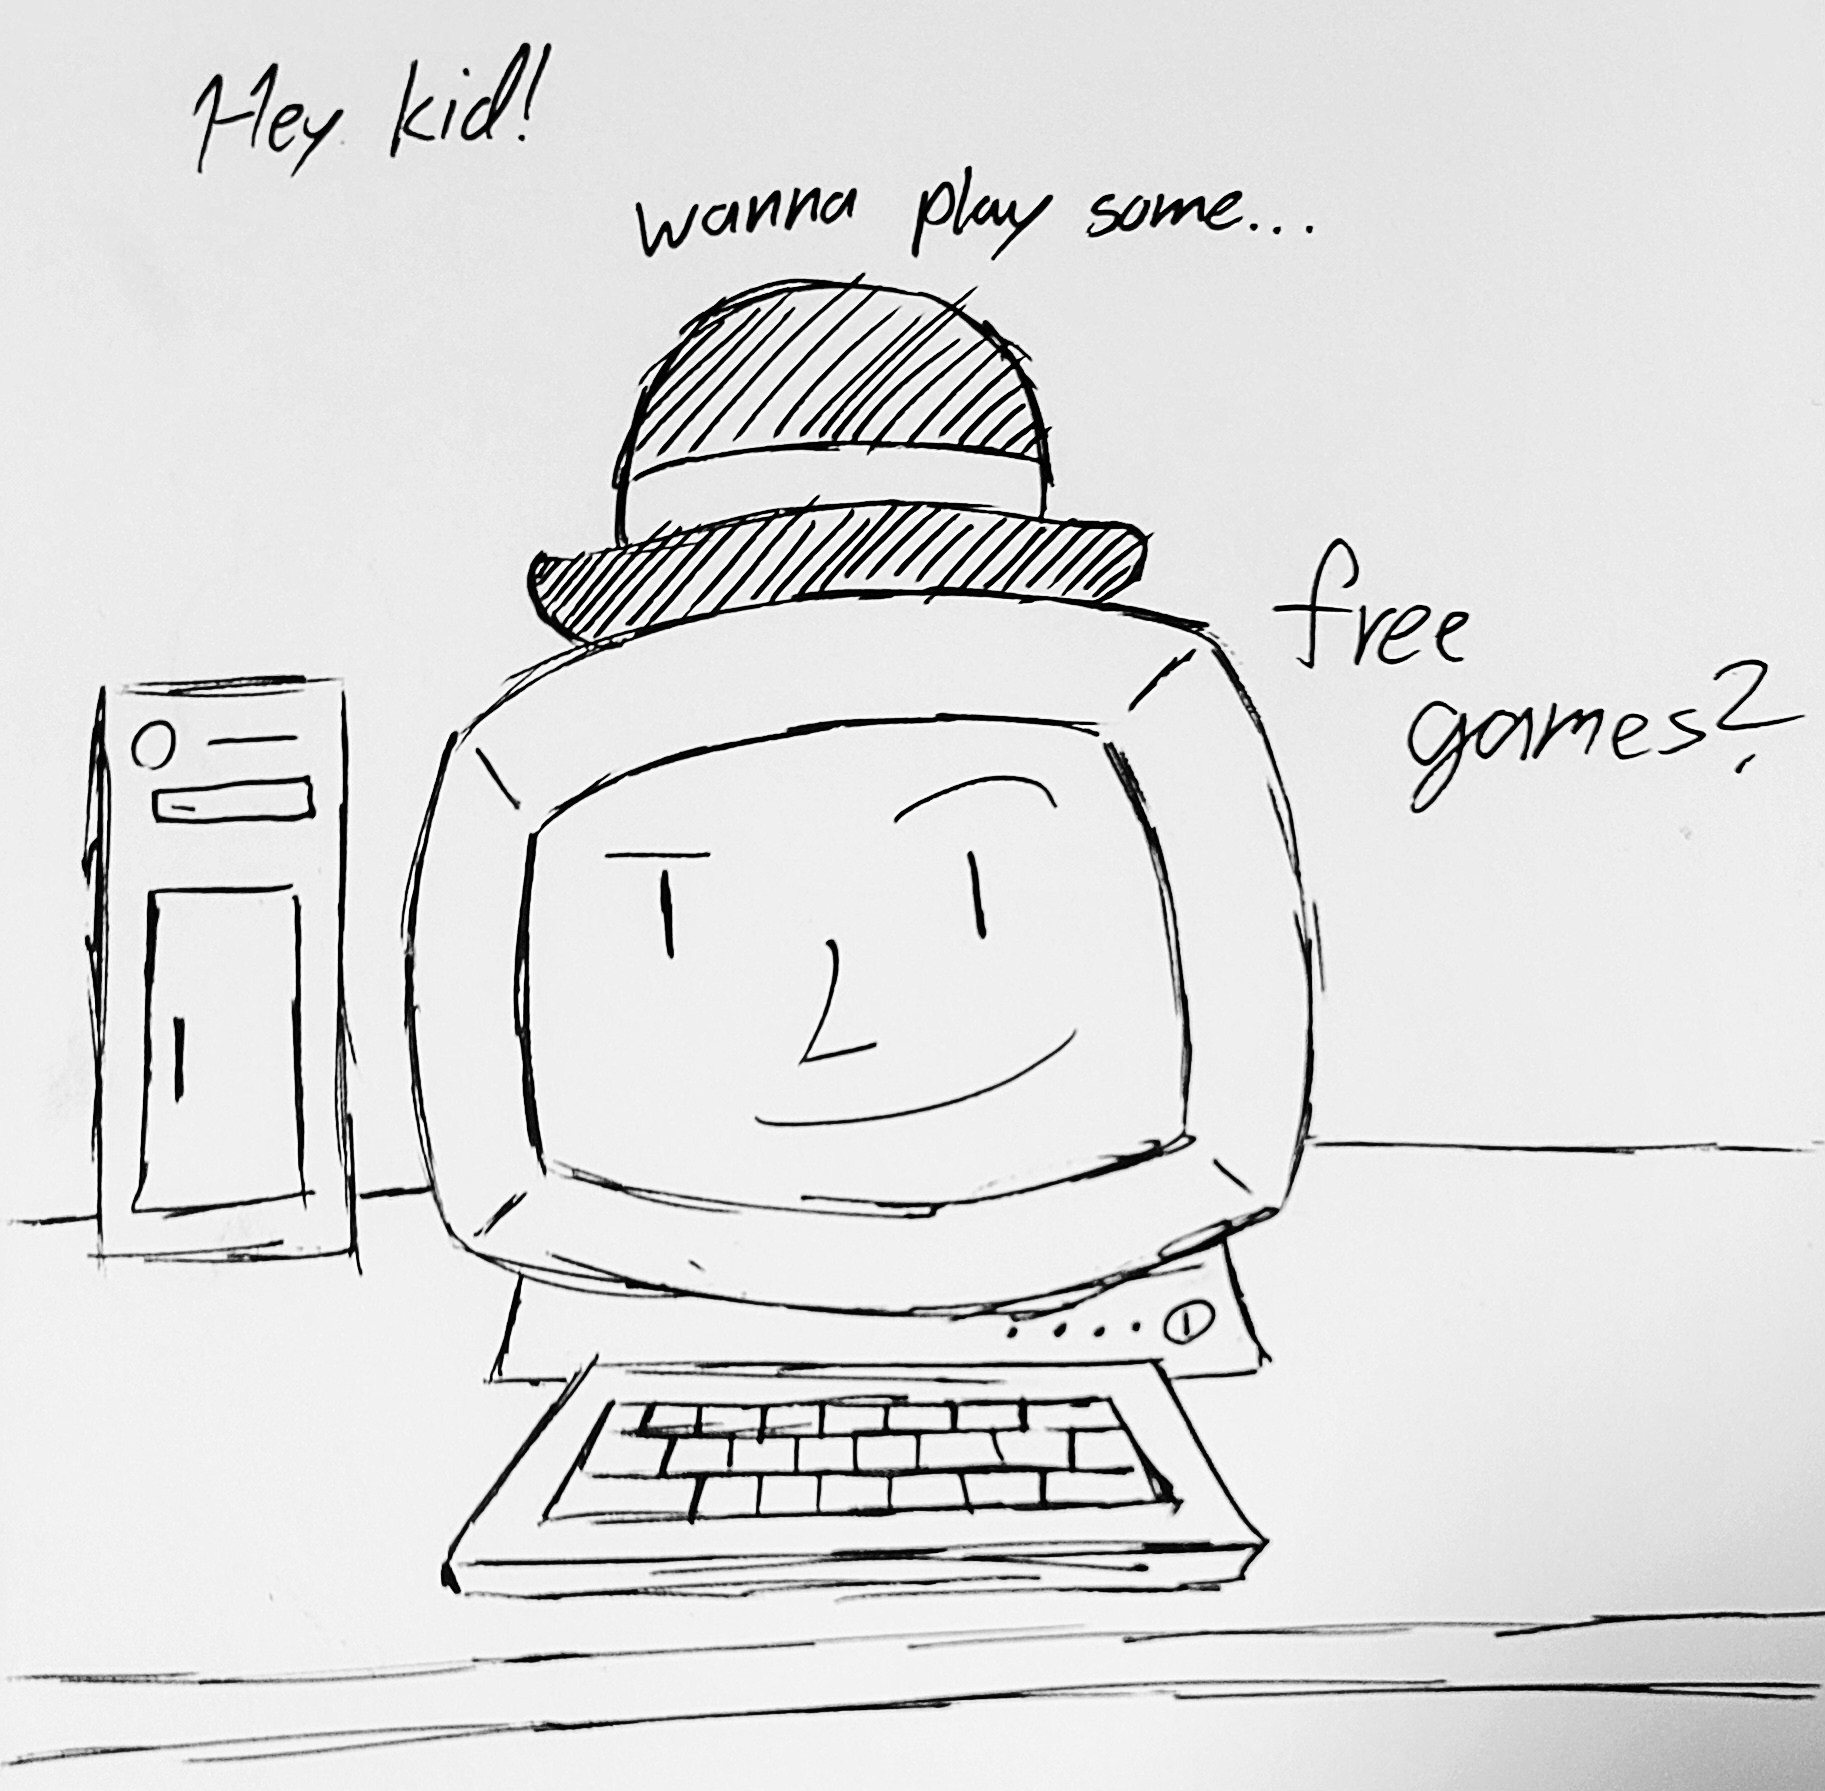 Hey kid!
wanna play some...
free
games?